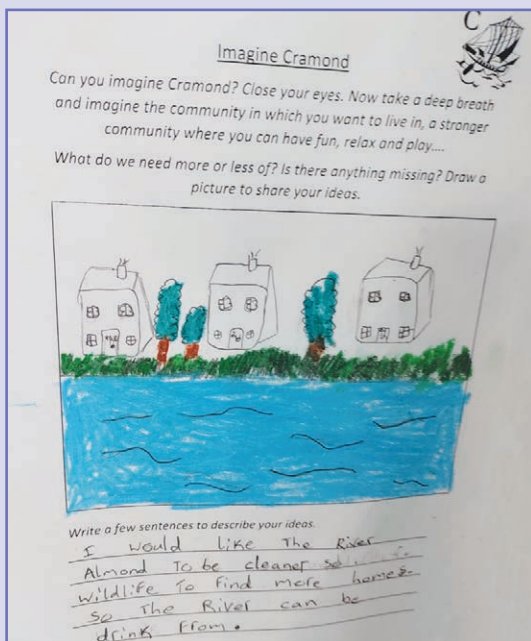 C
Imagine Cramond
Can you imagine Cramond? Close your eyes. Now take a deep breath
and imagine the community in which you want to live in, a stronger
community where you can have fun, relax and play....
What do we need more or less of? Is there anything missing? Draw a
picture to share your ideas.
Write a few sentences to describe your ideas.
I would like The River
Almond To be cleaner so
wildlife To find more homes.
So The River can be
drink From.